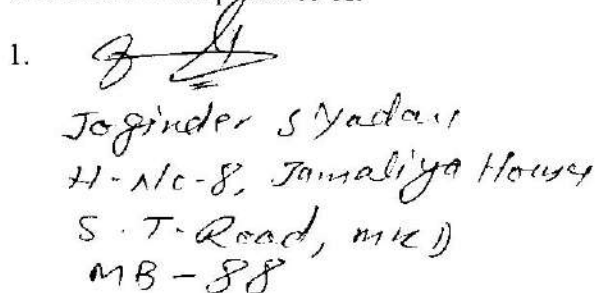 1.
Joginder S Yadav
H-No-8, Jamaliya House
S.T-Road, MKD
MB-88